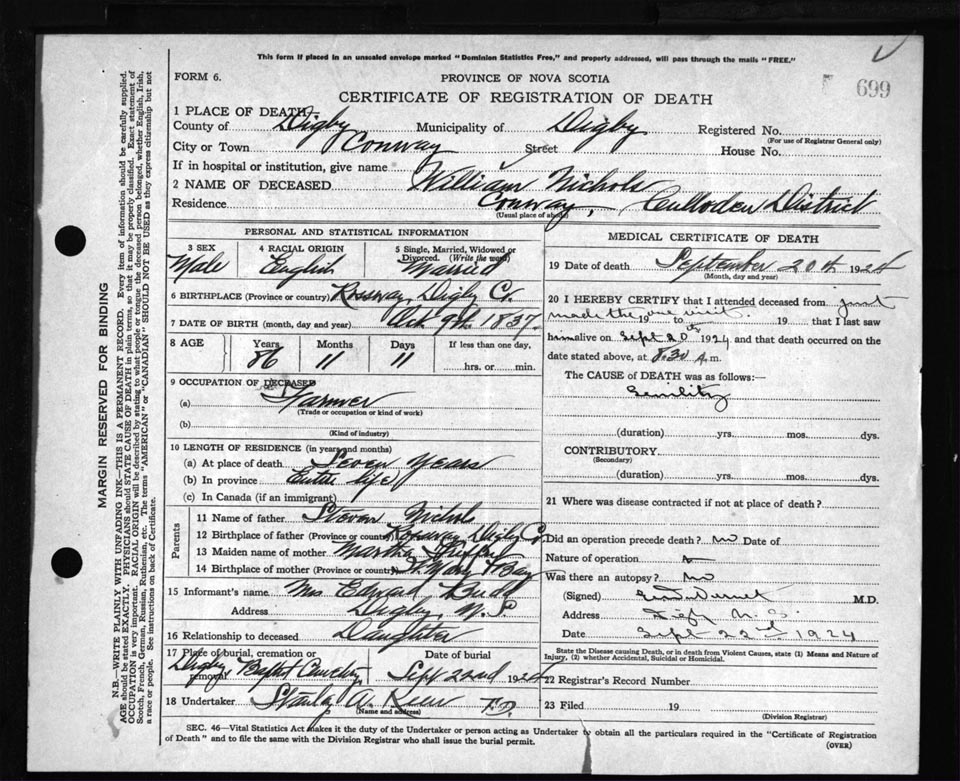 This form if placed in an unsealed envelope marked "Dominion Statistics Free," and properly addressed, will pass through the mails "FREE."
FORM 6.
PROVINCE OF NOVA SCOTIA
699
CERTIFICATE OF REGISTRATION OF DEATH
1 PLACE OF DEATH
County of Digby Municipality of Digby Registered No.
(For use of Registrar General only)
City or Town Conway Street House No.
If in hospital or institution, give name
2 NAME OF DECEASED William Nichols
Residence Conway, Culloden District
(Usual place of abode)
PERSONAL AND STATISTICAL INFORMATION
3 SEX 4 RACIAL ORIGIN 5 Single, Married, Widowed or Divorced. (Write the word)
Male English Married
6 BIRTHPLACE (Province or country) Rossway, Digby Co.
7 DATE OF BIRTH (month, day and year) Oct. 9th 1837.
8 AGE Years Months Days If less than one day,
86 11 11 hrs. or min.
9 OCCUPATION OF DECEASED
(a) Farmer
(Trade or occupation or kind of work)
(b)
(Kind of industry)
10 LENGTH OF RESIDENCE (in years and months)
(a) At place of death Seven Years
(b) In province Entire life
(c) In Canada (if an immigrant)
Parents
11 Name of father Steven Nichols
12 Birthplace of father (Province or country) Rossway Digby Co.
13 Maiden name of mother Martha
14 Birthplace of mother (Province or country) St. Mary's Bay
15 Informant's name Mrs Edward Budd
Address Digby, N.S.
16 Relationship to deceased Daughter
17 Place of burial, cremation or removal Date of burial
Digby, Baptist Cemetery Sept 22nd 1924
18 Undertaker Stanley A.
(Name and address)
MEDICAL CERTIFICATE OF DEATH
19 Date of death September 20th 1924
(Month, day and year)
20 I HEREBY CERTIFY that I attended deceased from just
made the one visit. 19 to 19 that I last saw
him alive on Sept 20th 1924 and that death occurred on the
date stated above, at 8.30 A.m.
The CAUSE of DEATH was as follows:—
Senility
(duration) yrs. mos. dys.
CONTRIBUTORY
(Secondary)
(duration) yrs. mos. dys.
21 Where was disease contracted if not at place of death?
Did an operation precede death? no Date of
Nature of operation
Was there an autopsy? no
(Signed) M.D.
Address Digby N.S.
Date Sept 22nd 1924
State the Disease causing Death, or in death from Violent Causes, state (1) Means and Nature of Injury, (2) whether Accidental, Suicidal or Homicidal.
22 Registrar's Record Number
23 Filed 19
(Division Registrar)
SEC. 46—Vital Statistics Act makes it the duty of the Undertaker or person acting as Undertaker to obtain all the particulars required in the "Certificate of Registration
of Death" and to file the same with the Division Registrar who shall issue the burial permit.
(OVER)
MARGIN RESERVED FOR BINDING
N.B.—WRITE PLAINLY WITH UNFADING INK—THIS IS A PERMANENT RECORD. Every item of information should be carefully supplied.
AGE should be stated EXACTLY. PHYSICIANS should STATE CAUSE OF DEATH in plain terms, so that it may be properly classified. Exact statement of
OCCUPATION is very important. RACIAL ORIGIN will be described by stating to what people or tongue the deceased person belonged, whether English, Irish,
Scotch, French, German, Russian, Ruthenian, etc. The terms "AMERICAN" or "CANADIAN" SHOULD NOT BE USED as they express citizenship but not
a race or people. See instructions on back of Certificate.